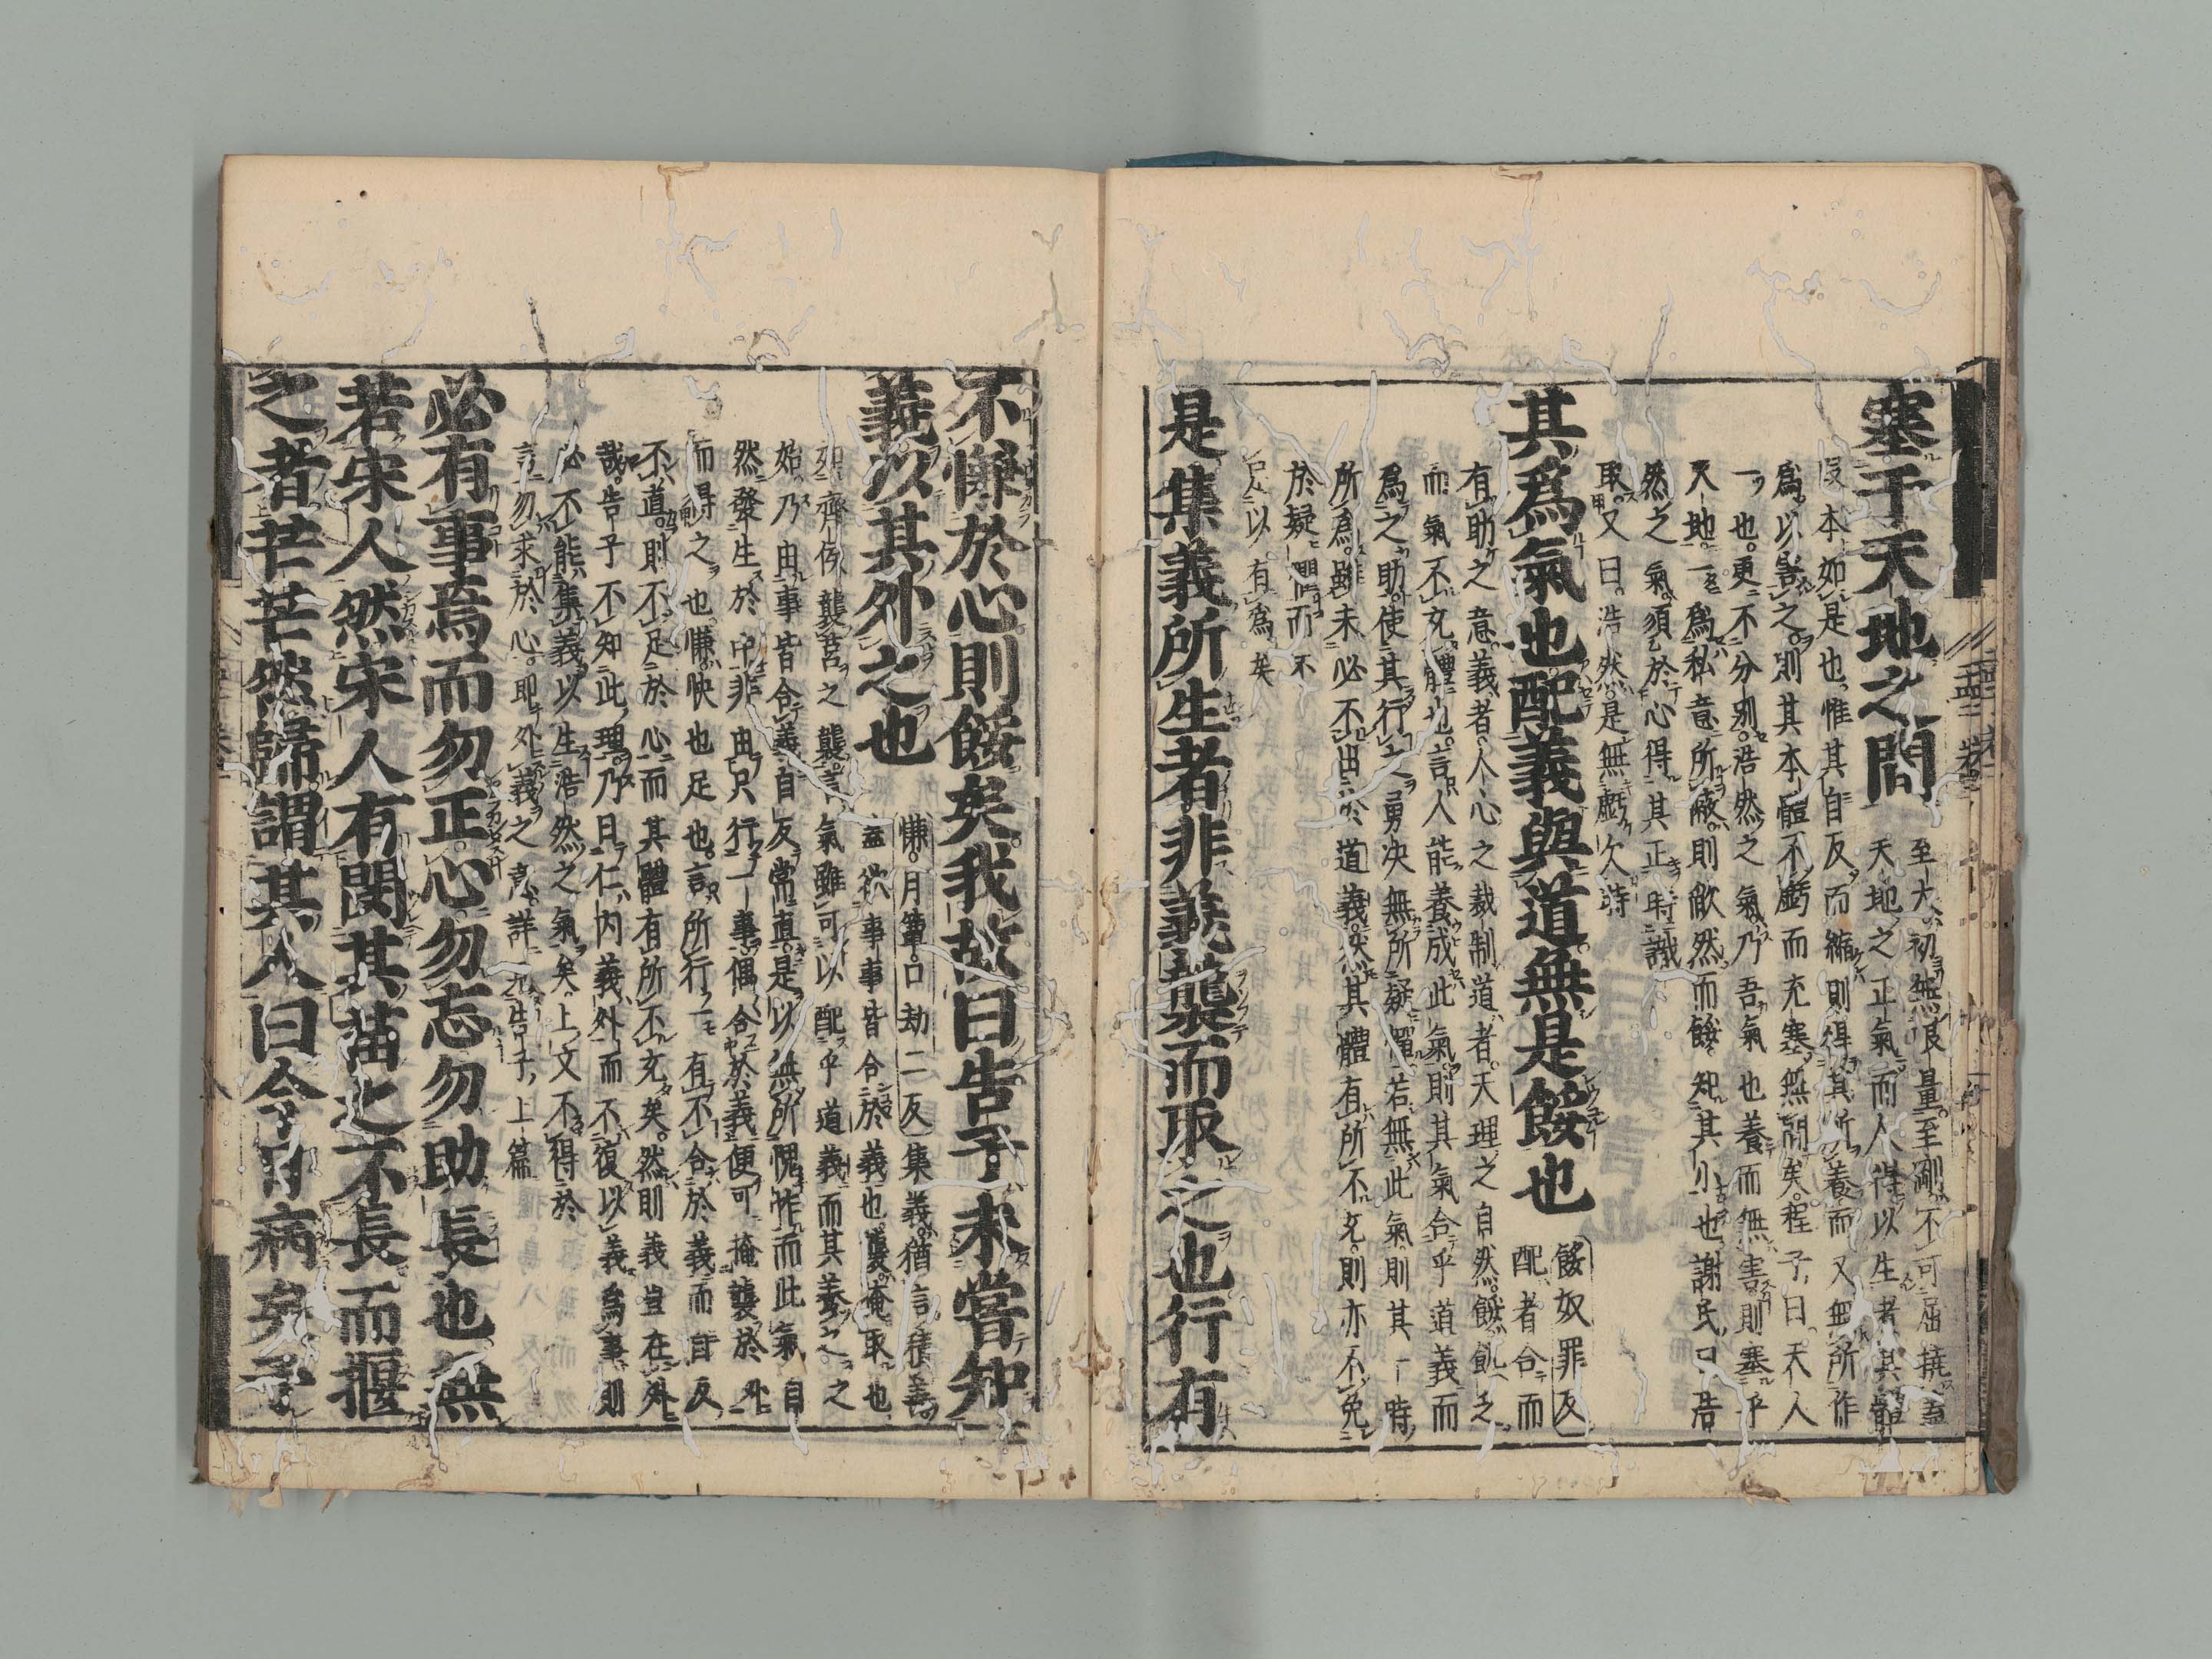 塞于天地之間
至大初無限量至剛不可屈撓蓋
天地之正氣而人得以生者其體
段本如是也惟其自反而縮則得其所養而又無所作
爲以害之則其本體不虧而充塞無間矣程子曰天人
一也更不分別浩然之氣乃吾氣也養而無害則塞乎
天地一爲私意所蔽則欿然而餒知其小也謝氏曰浩
然之氣須於心得其正時識
取又曰浩然是無虧欠時
其爲氣也配義與道無是餒也
餒奴罪反
配者合而
有助之意義者人心之裁制道者天理之自然餒飢乏
而氣不充體也言人能養成此氣則其氣合乎道義而
爲之助使其行之勇決無所疑憚若無此氣則其一時
所爲雖未必不出於道義然其體有所不充則亦不免
於疑懼而不
足以有爲矣
是集義所生者非義襲而取之也行有
不慊於心則餒矣我故曰告子未嘗知
義以其外之也
慊口簟口劫二反集義猶言積善
蓋欲事事皆合於義也襲掩取也
如齊侯襲莒之襲言氣雖可以配乎道義而其養之之
始乃由事皆合義自反常直是以無所愧怍而此氣自
然發生於中非由只行一事偶合於義便可掩襲於外
而得之也慊快也足也言所行一有不合於義而自反
不直則不足於心而其體有所不充矣然則義豈在外
哉告子不知此理乃曰仁內義外而不復以義爲事則
必不能集義以生浩然之氣矣上文不得於
言勿求於心即外義之意詳見告子上篇
必有事焉而勿正心勿忘勿助長也無
若宋人然宋人有閔其苗之不長而揠
之者芒芒然歸謂其人曰今日病矣予